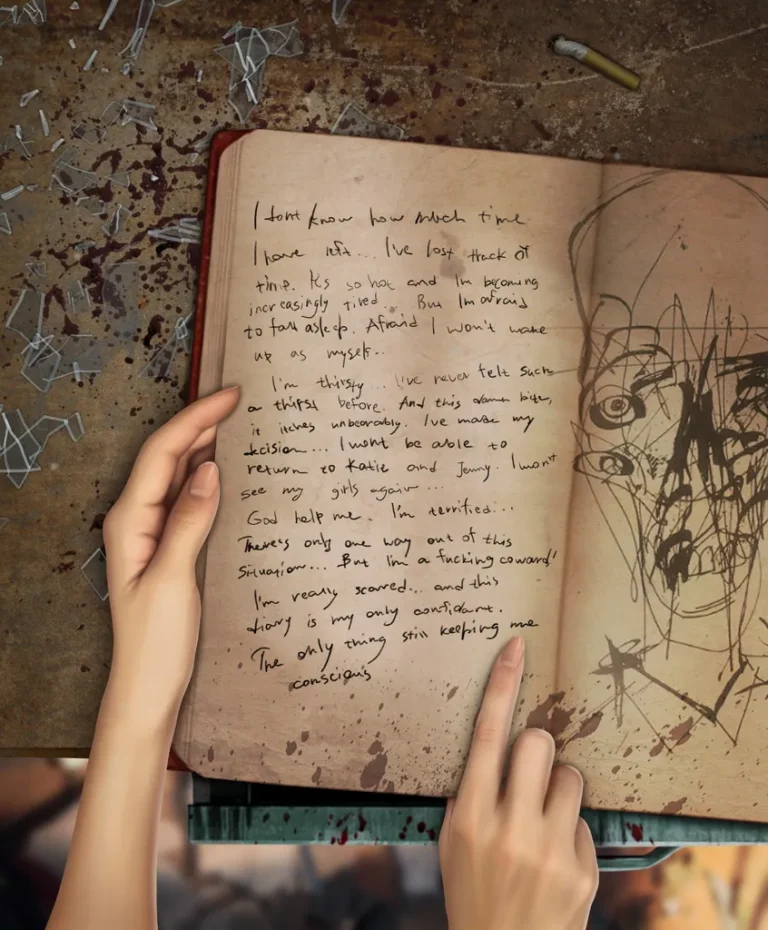 I dont know how much time
I have left... I've lost track of
time. It's so hot and I'm becoming
increasingly tired... But I'm afraid
to fall asleep. Afraid I won't wake
up as myself...
I'm thirsty... I've never felt such
a thirst before. And this damn bite,
it itches unbearably. I've made my
decision... I wont be able to
return to Katie and Jenny. I won't
see my girls again...
God help me. I'm terrified...
There's only one way out of this
situation... But I'm a fucking coward!
I'm really scared... and this
diary is my only confidant.
The only thing still keeping me
conscious